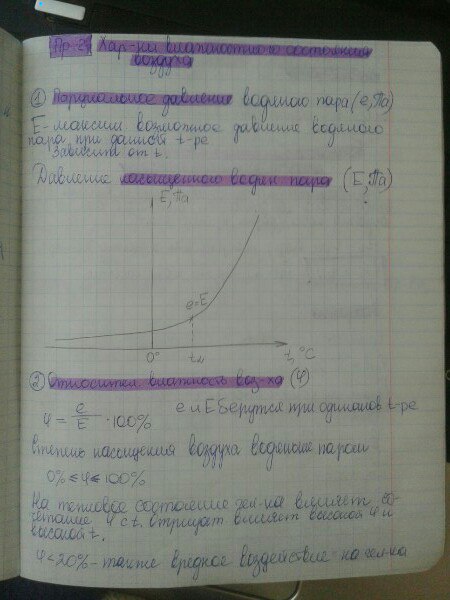 Пр-2. Хар-ки влажностного состояния
воздуха
① Парциальное давление водяного пара (e, Па)
E - максим возможное давление водяного
пара, при данной t-ре
Зависит от t.
Давление насыщенного водян пара (E, Па)
E, Па
e=E
0°
t, °C
② Относител. влажность воз-ха (φ)
φ = e/E · 100% e и E берутся при одинаков t-ре
Степень насыщения воздуха водяным паром
0% ≤ φ ≤ 100%
На тепловое состояние чел-ка влияет со-
четание φ с t. Отрицат влияет высокая φ и
высокой t.
φ < 20% - также вредное воздействие на чел-ка